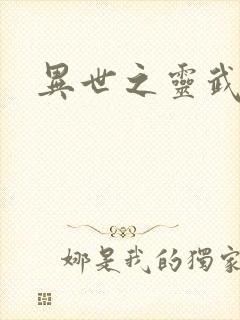 異世之靈武
娜是我的獨家